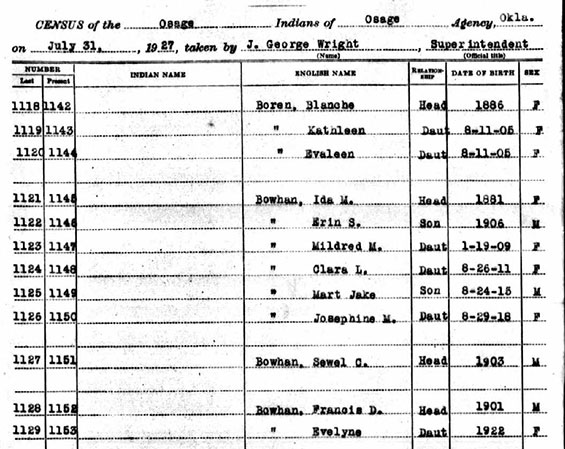 CENSUS of the Osage Indians of Osage Agency, Okla.
on July 31, 1927, taken by J. George Wright, Superintendent
(Name) (Official title)
NUMBER INDIAN NAME ENGLISH NAME RELATION-SHIP DATE OF BIRTH SEX
Last Present
1118 1142 Boren, Blanche Head 1886 F
1119 1143 " Kathleen Daut 8-11-05 F
1120 1144 " Evaleen Daut 8-11-05 F
1121 1145 Bowhan, Ida M. Head 1881 F
1122 1146 " Erin S. Son 1906 M
1123 1147 " Mildred M. Daut 1-19-09 F
1124 1148 " Clara L. Daut 8-26-11 F
1125 1149 " Mart Jake Son 8-24-15 M
1126 1150 " Josephine M. Daut 8-29-18 F
1127 1151 Bowhan, Sewel C. Head 1903 M
1128 1152 Bowhan, Francis D. Head 1901 M
1129 1153 " Evelyne Daut 1922 F